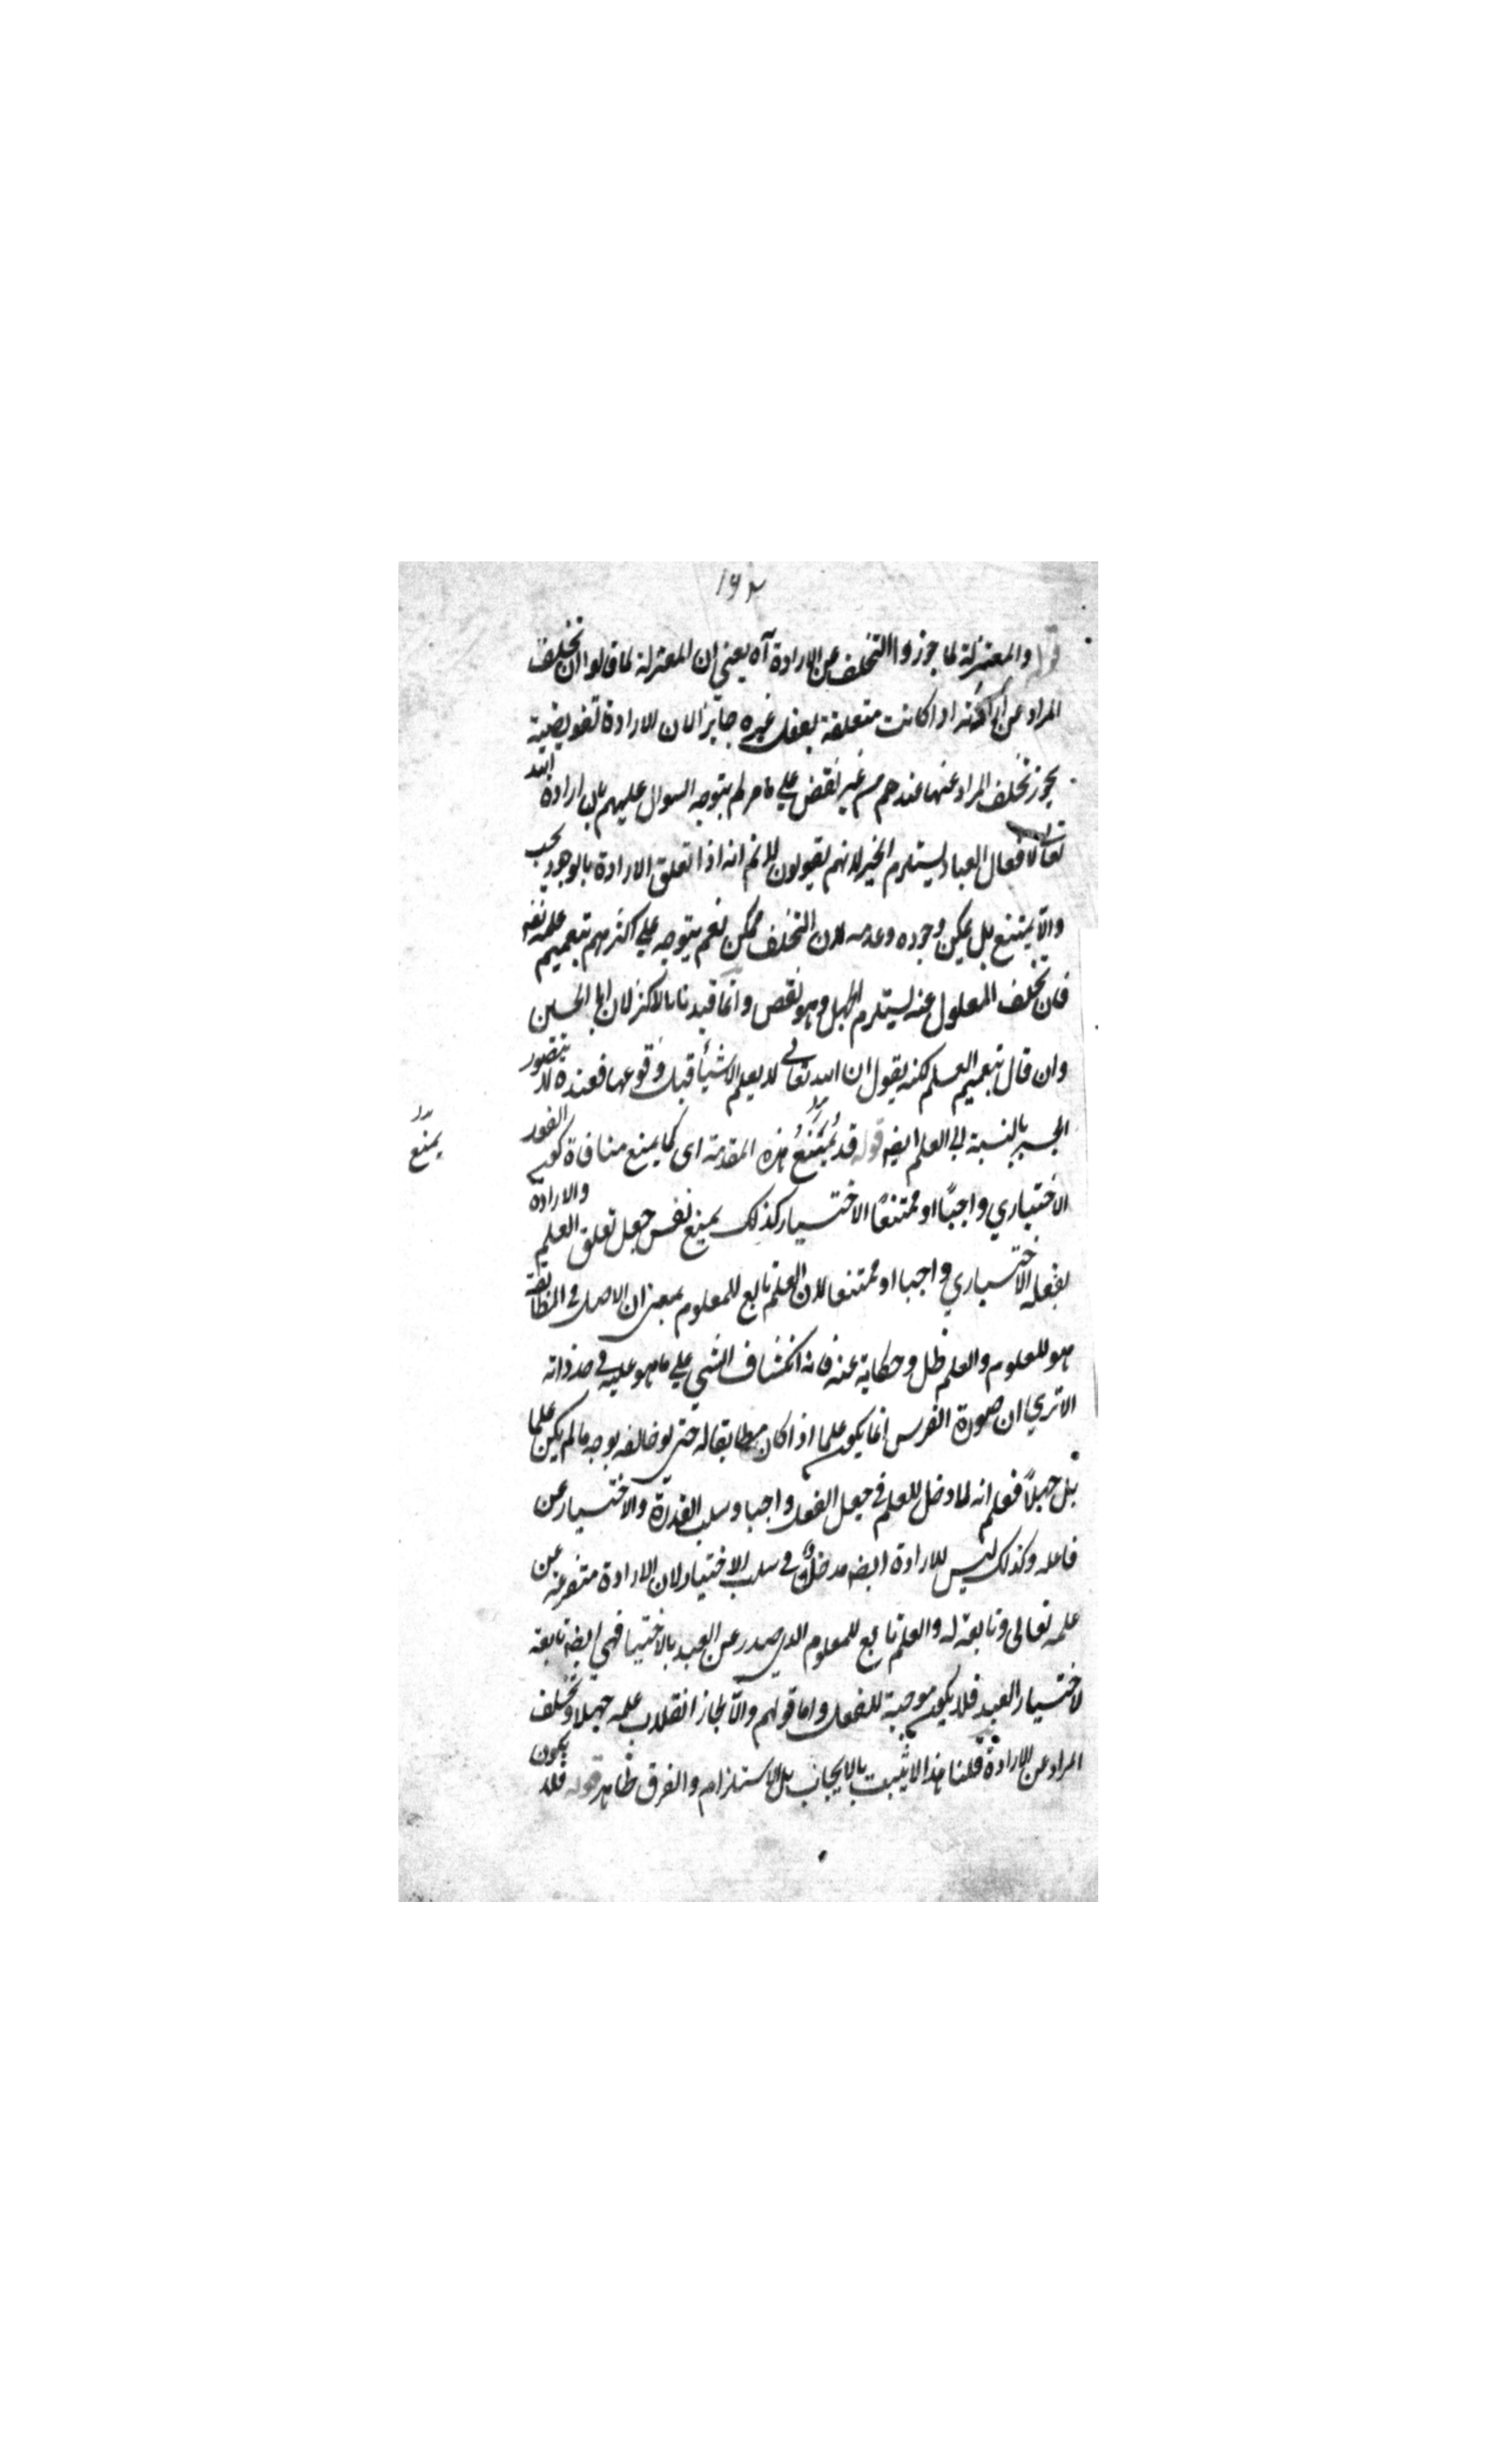 ١٩٢
قوله والمعتزلة لما جوزوا التخلف عن الارادة آه يعني ان المعتزلة لما قالوا ان تخلف
المراد عن ارادته اذا كانت متعلقة بفعل غيره جائز لان الارادة تفويضية
يجوز تخلف المراد عنها عندهم من غير نقض علي ما مر لم يتوجه السوال عليهم بان ارادة الله
تعالى لافعال العباد يستلزم الجبر لانهم يقولون لا نم انه اذا تعلق الارادة بالوجود يجب
والا يمتنع بل يمكن وجوده وعدمه لان التخلف ممكن نعم يتوجه علي اكثرهم بتعميم علمه
فان تخلف المعلول عنه يستلزم الجهل وهو نقص وانما قيدنا بالاكثر لان ابا الحسين
وان قال بتعميم العلم لكنه يقول ان الله تعالى لا يعلم الاشياء قبل وقوعها فعنده لا يتصور
الجبر بالنسبة الي العلم ايضه قوله قد يمنع هذه المقدمة اى كما يمنع منافاة كون الفعل
يمنع
الاختياري واجبًا او ممتنعًا الاختيار كذلك يمنع نفس جعل تعلق العلم والارادة
بفعله الاختياري واجبا او ممتنعا لان العلم تابع للمعلوم بمعنى ان الاصل في المطابقة
هو المعلوم والعلم ظل وحكاية عنه فانه انكشاف الشي علي ما هو عليه في حد ذاته
الا تري ان صورة الفرس انما يكون علما اذا كان مطابقا له حتى لو خالفه بوجه ما لم يكن علما
بل جهلاً فعلم انه لا دخل للعلم في جعل الفعل واجبا وسلب القدرة والاختيار عن
فاعله وكذلك ليس للارادة ايضه مدخل في سلب الاختيار لان الارادة متفرعة عن
علمه تعالى وتابعة له والعلم تابع للمعلوم الذي صدر عن العبد بالاختيا فهي ايضه تابعة
لاختيار العبد فلا يكون موجبة للفعل واما قولهم والا لجاز انقلاب علمه جهلا وتخلف
المراد عن الارادة قلنا هذا لا يثبت بالايجاب بل الاستلزام والفرق ظاهر قوله فلا يكون